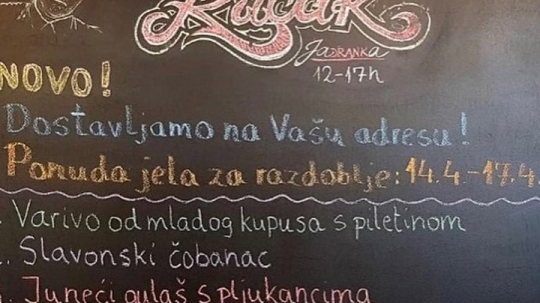 Ručak
JADRANKA
12-17h
NOVO!
Dostavljamo na Vašu adresu!
Ponuda jela za razdoblje: 14.4.-17.4.
Varivo od mladog kupusa s piletinom
Slavonski čobanac
Juneći gulaš s pljukancima